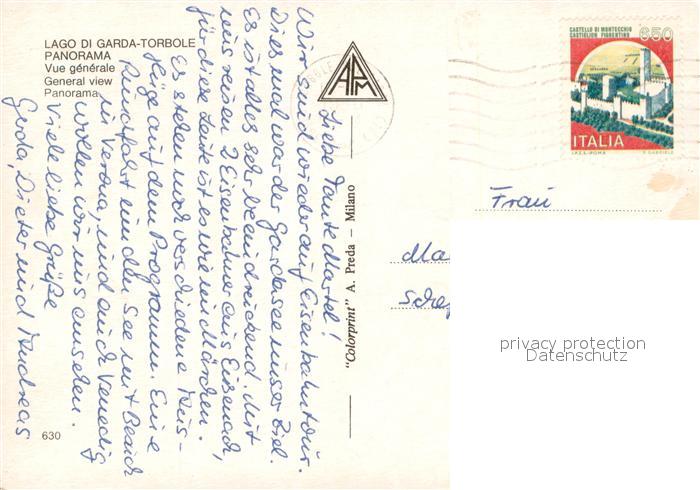 LAGO DI GARDA-TORBOLE
PANORAMA
Vue générale
General view
Panorama
630
Liebe Tante Martel!
Wir sind wieder auf Eisenbahntour.
Dies mal war der Gardasee unser Ziel.
Es ist alles sehr beeindruckend. Mit
uns reisen 2 Eisenbahner aus Eisenach,
für diese Leute ist es wie im Märchen.
Es stehen noch verschiedene Aus-
flüge auf dem Programm. Eine
Rundfahrt um den See mit Besuch
in Verona, und auch Venedig
wollen wir uns ansehen.
Viele liebe Grüße
Gerda, Dieter und Andreas
APM
"Colorprint" A. Preda – Milano
CASTELLO DI MONTECCHIO
CASTIGLION FIORENTINO
650
ITALIA
I.P.Z.S.-ROMA
Frau
Ma
Sche
privacy protection
Datenschutz